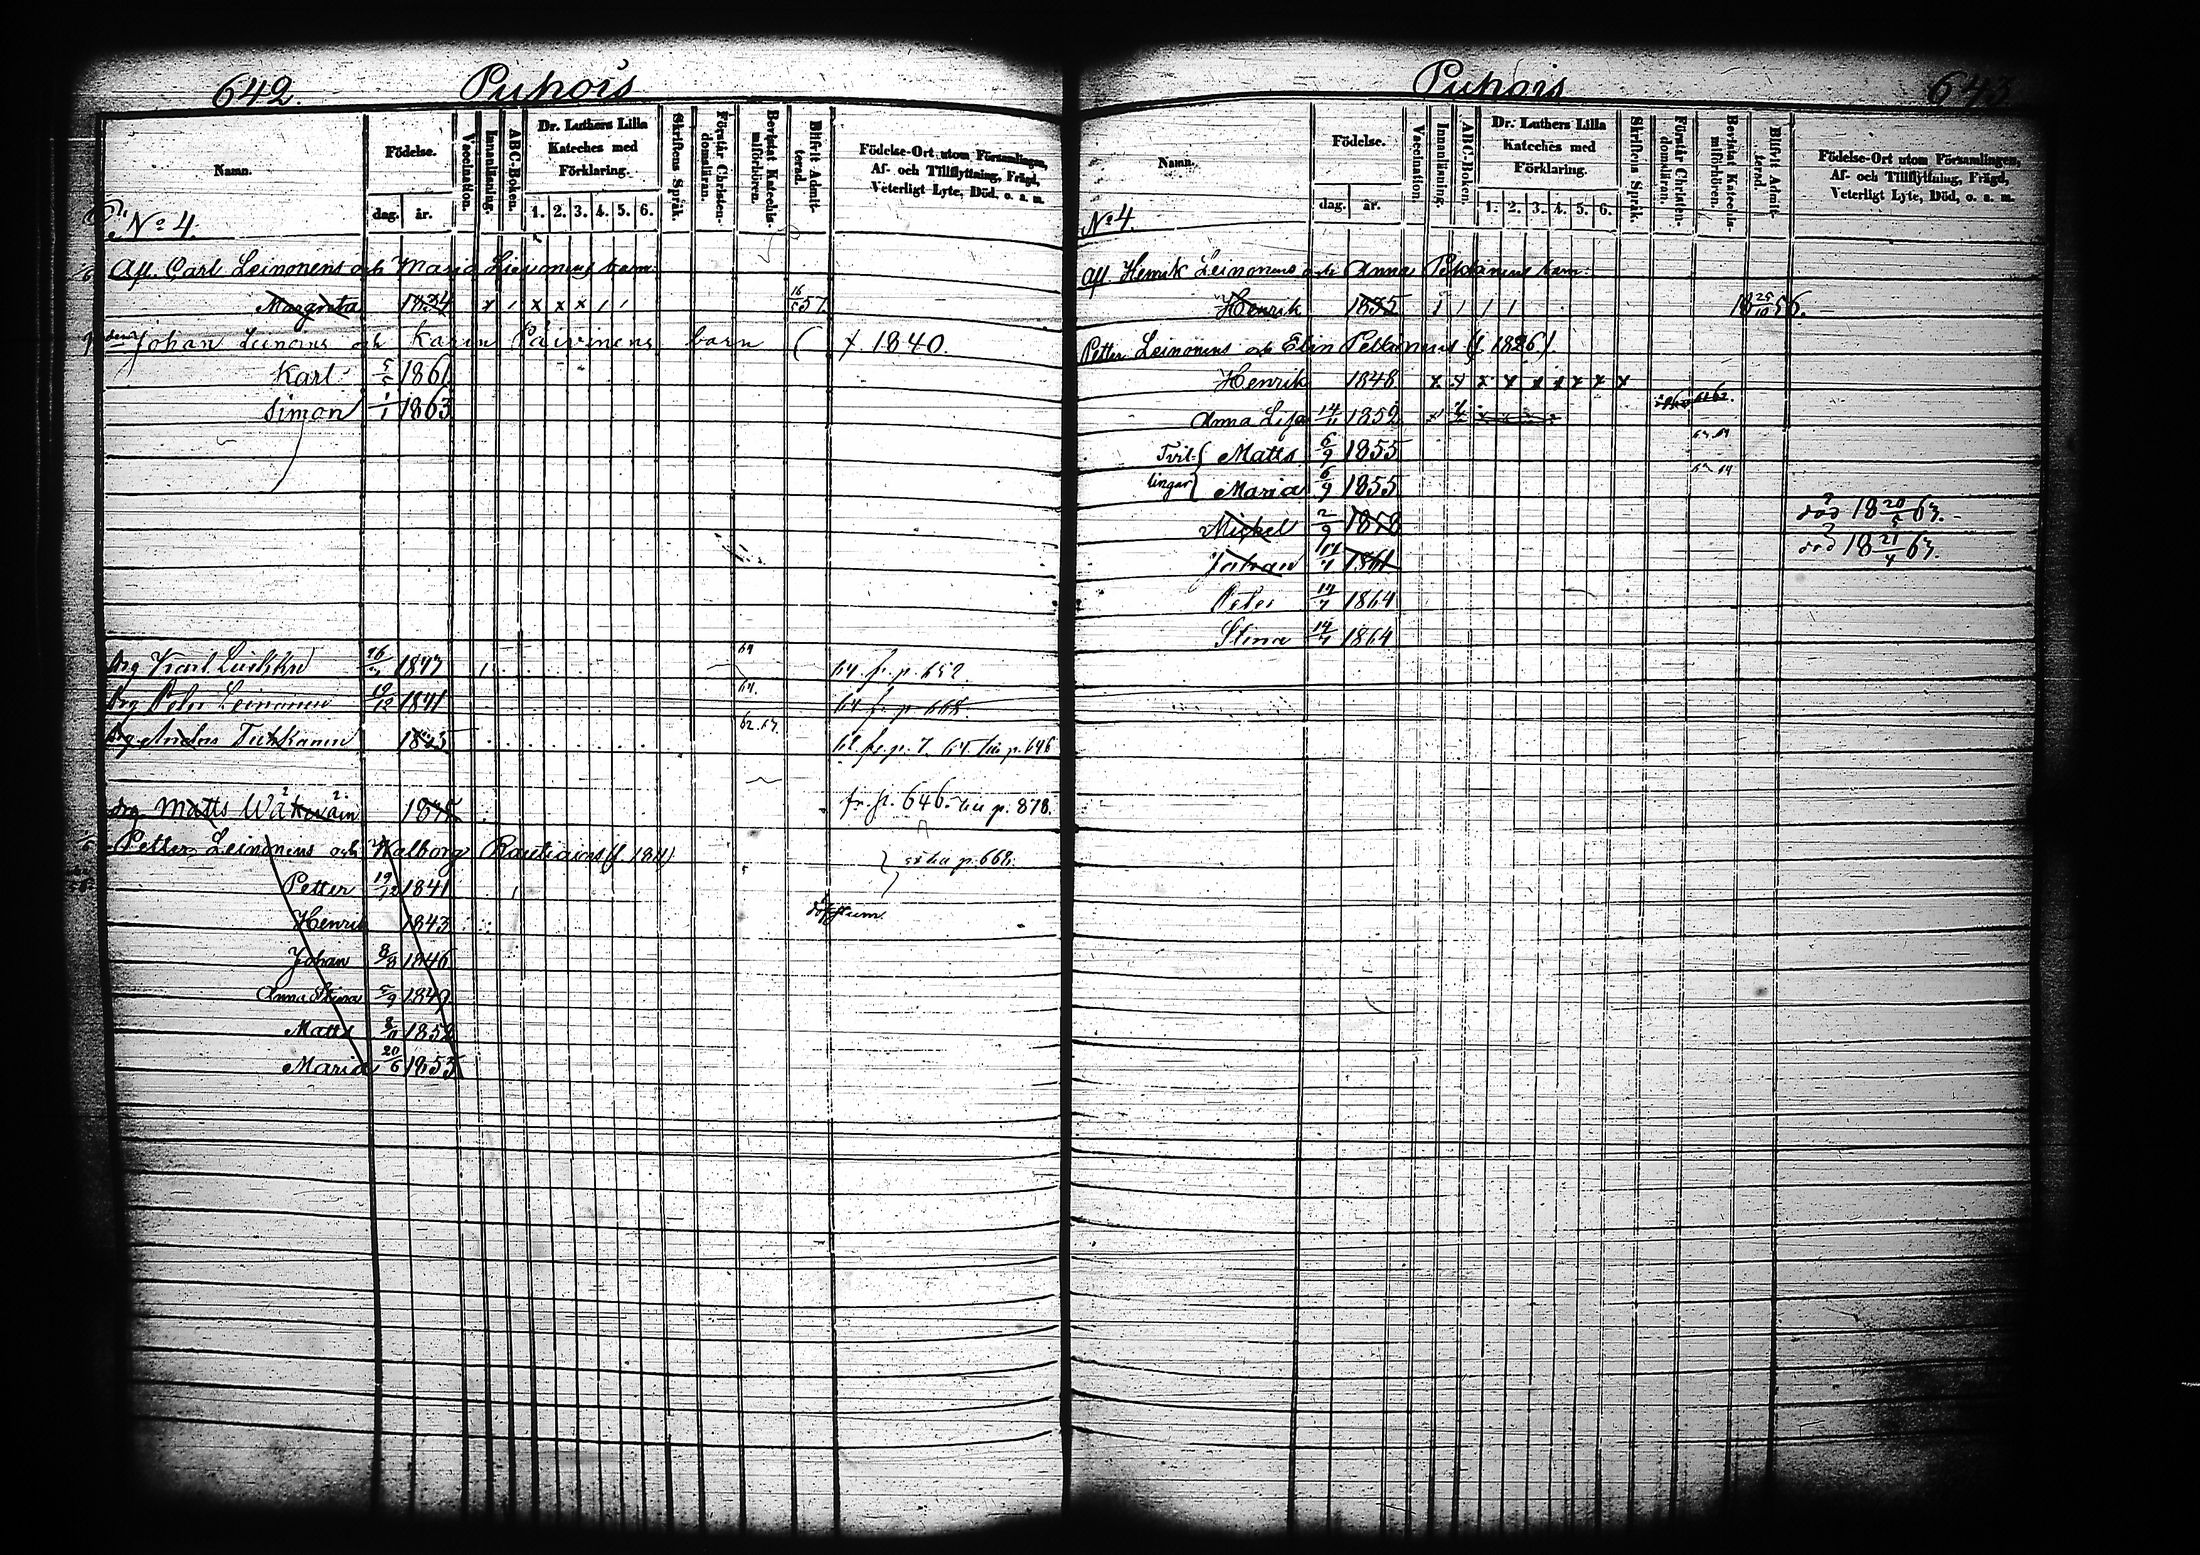 642. Puhois
Namn.
Födelse.
dag. år.
Vaccination.
Innanläsning.
ABC-Boken.
Dr. Luthers Lilla Kateches med Förklaring.
1. 2. 3. 4. 5. 6.
Skriftens Språk.
Förstår Christendomsläran.
Bevistat Katechismiförhören.
Blifvit Admitterad.
Födelse-Ort utom Församlingen,
Af- och Tillflyttning, Frägd,
Veterligt Lyte, Död, o. s. m.
No 4.
Afl. Carl Leinonens och Maria barn
Margreta 1834 57
Johan Leinons och Karin Päivinens barn f. 1840.
Karl 1861
Simon 1/1 1863
drg Karl 1847 64 64 fr. p. 652.
drg Peter Leinonen 19/12 1841 64. 64 fr p. 668
drg Anders Tuhkanen 1823 62. 63. fr. p. 7. 64 tu p. 646
drg Matts 1845 fr. p. 646. tu p. 878.
Petter Leinonens och Walborg Rautiains (f. 1811) tu p. 668.
Petter 19/12 1841
Henrik 1843 döfstum
Johan 8/8 1846
Anna Stina 5/9 1849
Matts 8/11 1852
Maria 20/6 1855
Puhois 643
Namn.
Födelse.
dag. år.
Vaccination.
Innanläsning.
ABC-Boken.
Dr. Luthers Lilla Kateches med Förklaring.
1. 2. 3. 4. 5. 6.
Skriftens Språk.
Förstår Christendomsläran.
Bevistat Katechismiförhören.
Blifvit Admitterad.
Födelse-Ort utom Församlingen,
Af- och Tillflyttning, Frägd,
Veterligt Lyte, Död, o. s. m.
No 4.
Afl. Henrik Leinonens och Anna Pekkanens barn:
Henrik 1835 18 25/10 56.
Petter Leinonens och Elin Pekkanens (f. 1826).
Henrik 1848
Anna Lisa 14/11 1852
Tvil- { Matts 6/9 1855
lingar { Maria 6/9 1855
Mickel 2/9 1858 död 18 20/5 63.
Johan 1861 död 18 21/4 63.
Peter 14/7 1864
Stina 14/7 1864